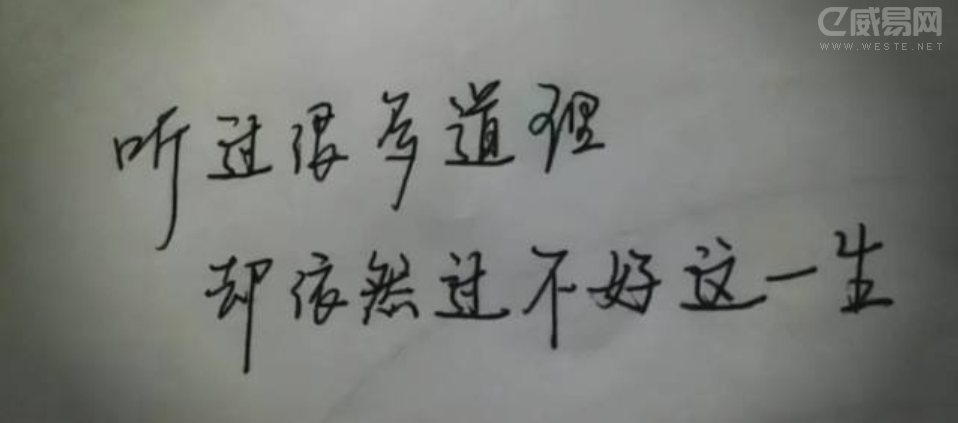 e威易网
WWW.WESTE.NET
听过很多道理
却依然过不好这一生